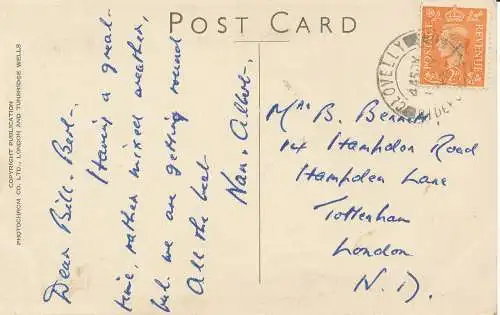 POST CARD
COPYRIGHT PUBLICATION
PHOTOCHROM CO. LTD., LONDON AND TUNBRIDGE WELLS
Dear Bill. Bert -
Having a great
time, rather mixed weather,
but we are getting round
All the best
Nan. Albert.
CLOVELLY
BIDEFORD
POSTAGE
REVENUE
Mrs B. Bennett
14 Hampden Road
Hampden Lane
Tottenham
London
N. 17.